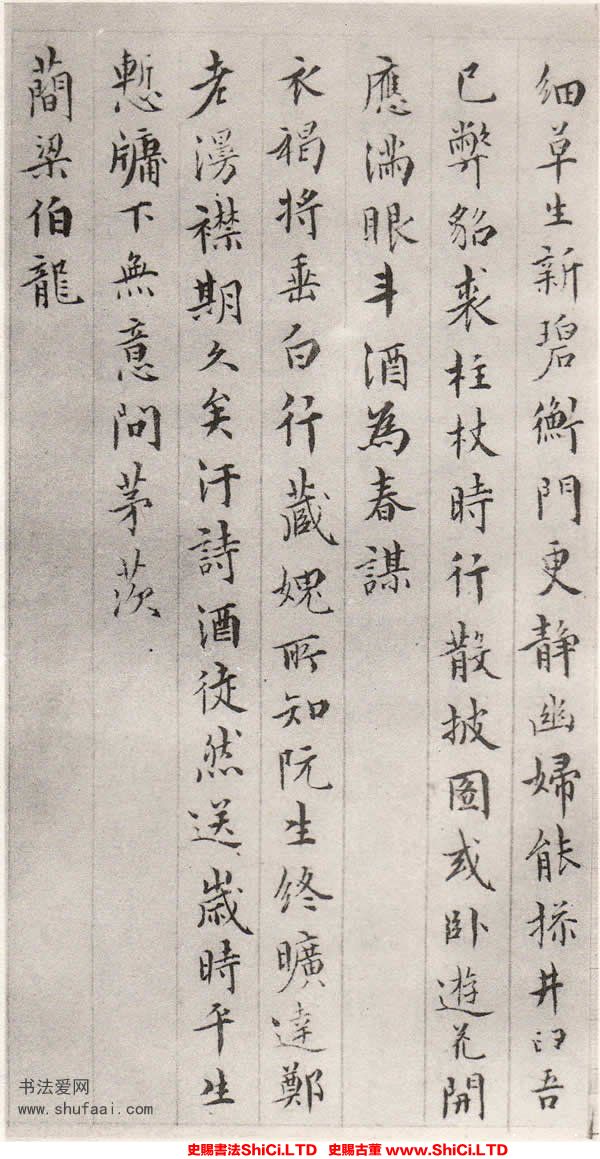 細草生新碧衡門更静幽婦能操井臼吾
已弊貂裘柱杖時行散披圖或卧遊花開
應滿眼斗酒為春謀
衣褐將垂白行藏媿所知阮生終曠達鄭
老漫襟期久矣汙詩酒徒然送歲時平生
慙牖下無意問茅茨
蕳梁伯龍
书法爱网
www.shufaai.com
史賜書法ShiCi.LTD 史賜古董 www.ShiCi.LTD